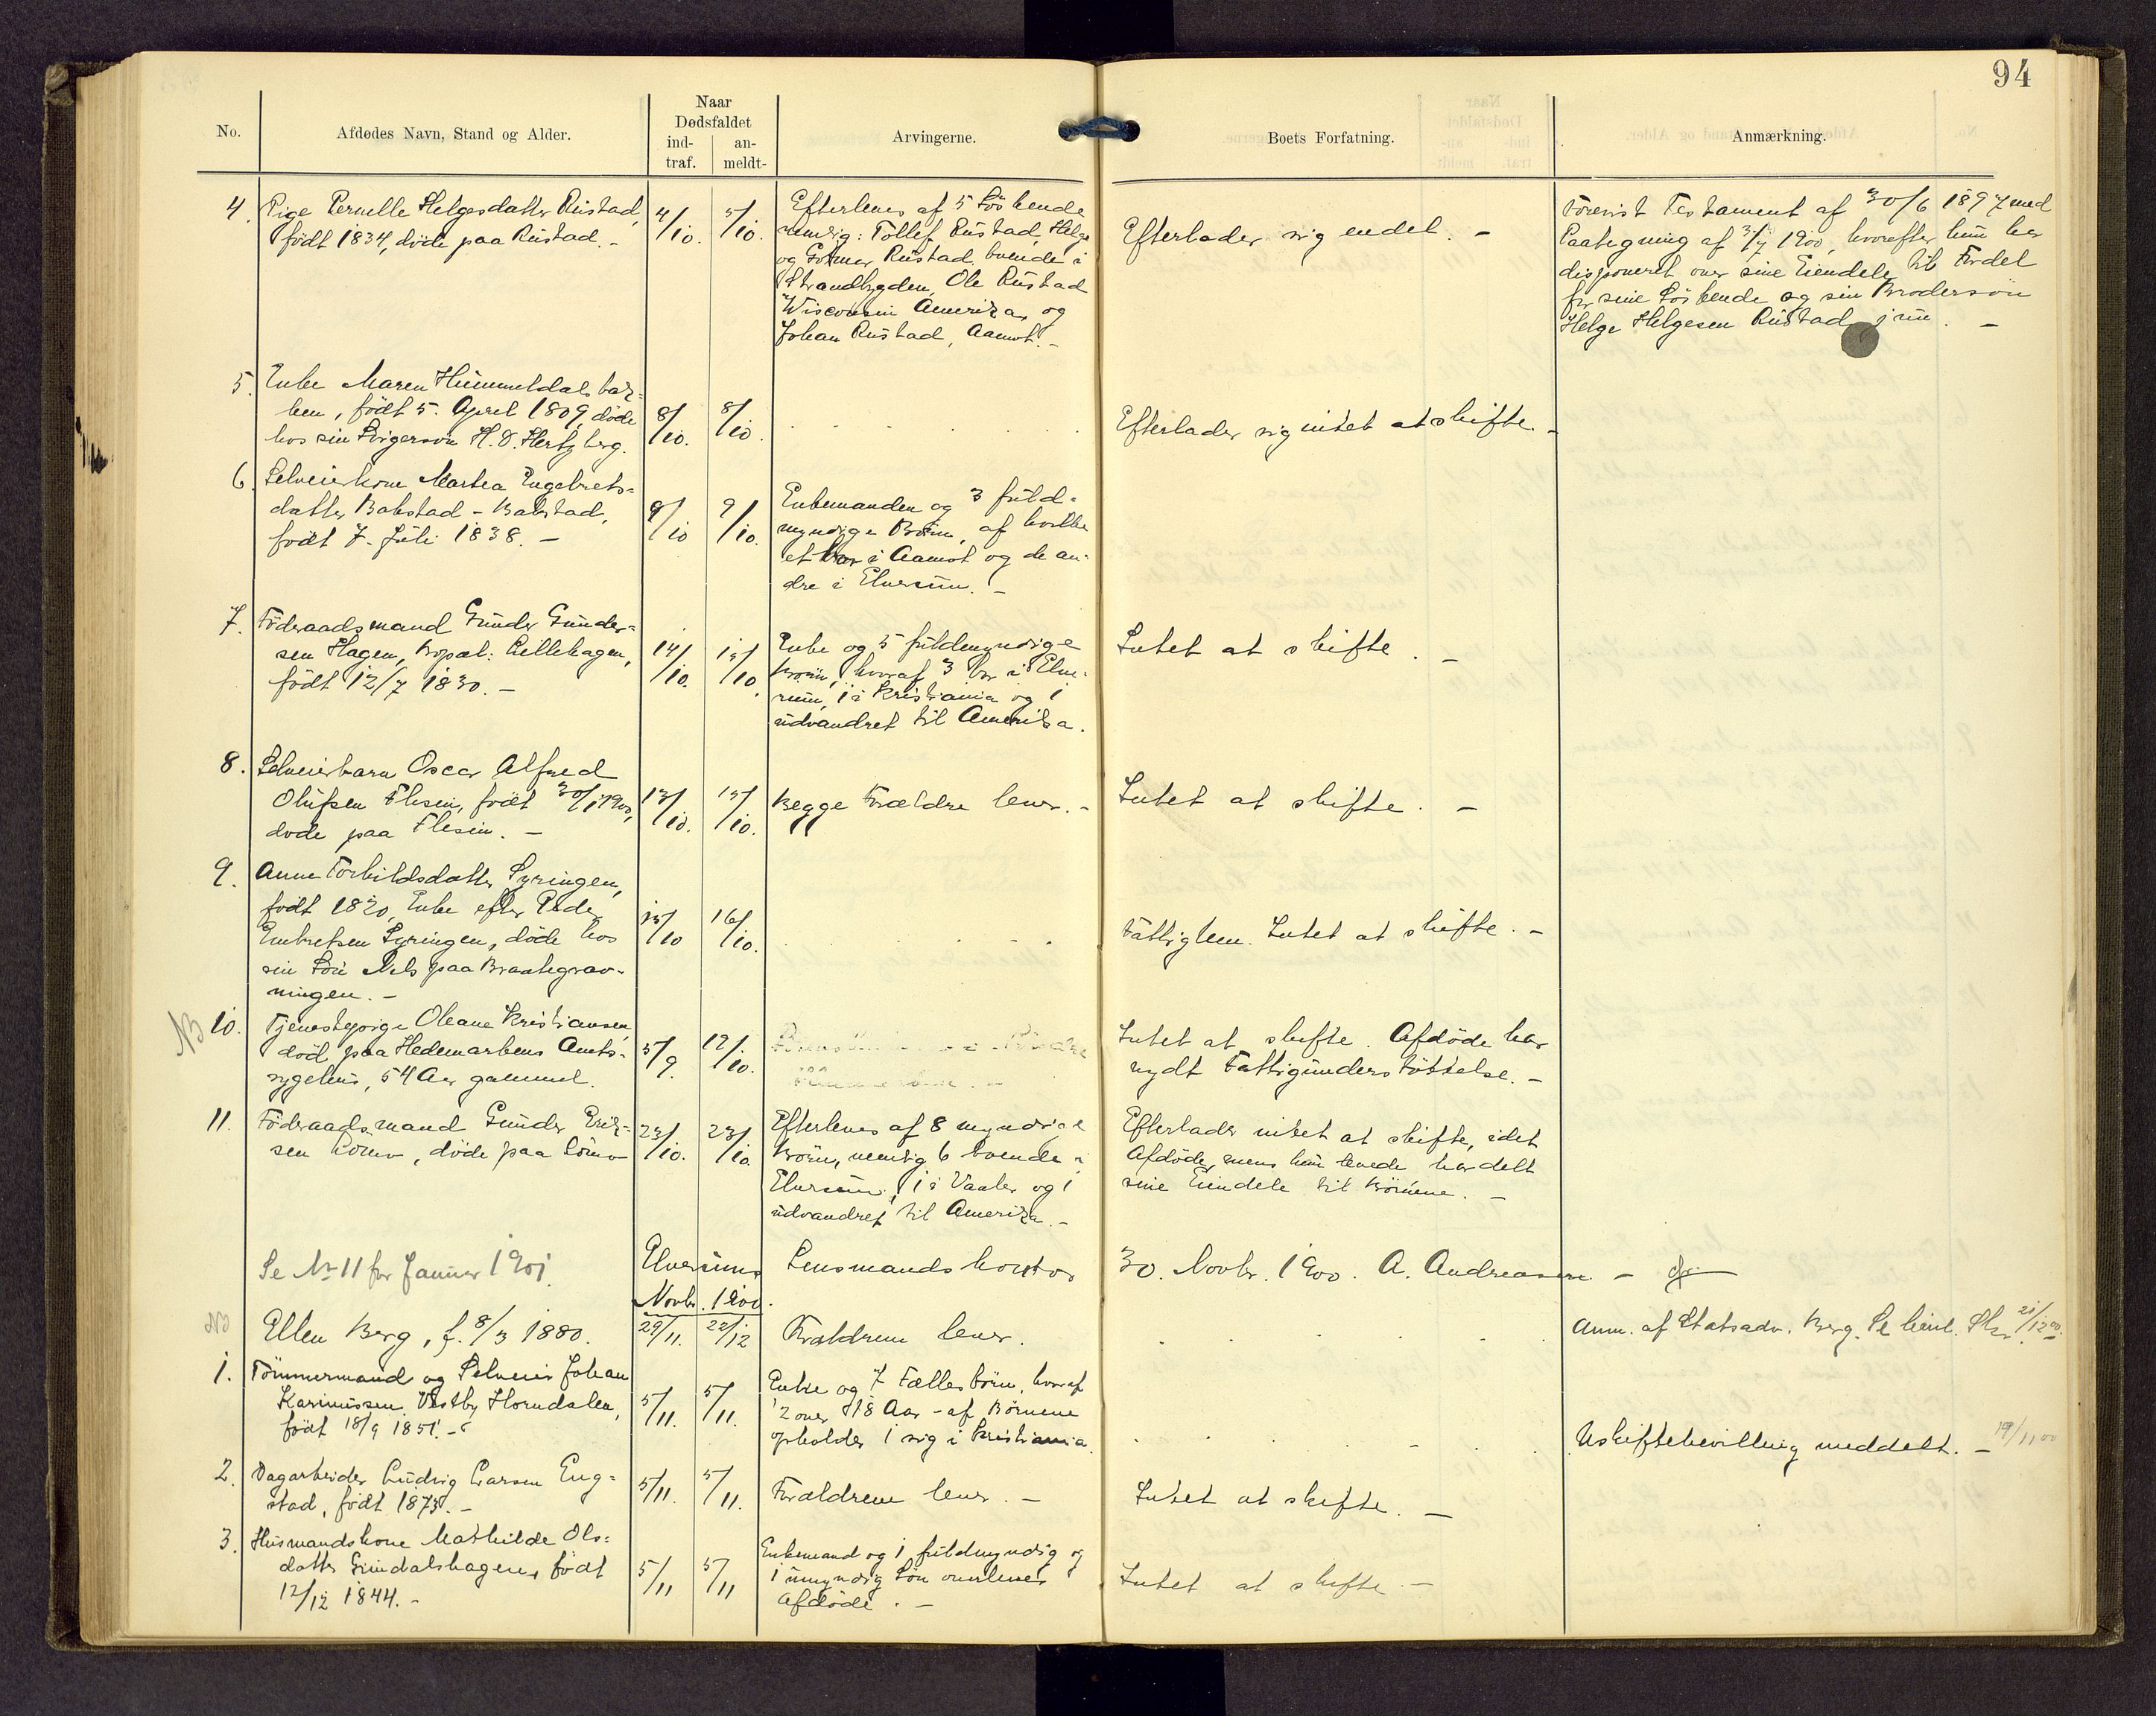 94
No.
Afdødes Navn, Stand og Alder.
Naar
Dødsfaldet
ind-
traf.
an-
meldt-
Arvingerne.
Boets Forfatning.
Anmærkning.
4. Pige Pernille Helgesdatter Rustad,
født 1834, døde paa Rustad. -
4/10.
5/10.
Efterleves af 5 Søskende
nemlig: Tollef Rustad, Helge
og Gunnar Rustad boende i
Strandbygden, Ole Rustad
Wisconsin Amerika, og
Johan Rustad, Aamot. -
Efterlader sig endel. -
Forevist Testament af 30/6 1897 med
Paategning af 3/7 1900, hvorefter hun har
disponeret over sine Eiendele til Fordel
for sine Søskende og sin Brodersøn
Helge Helgesen Rustad jun. -
5. Enke Maren Hummeldalsbak-
ken, født 5. April 1809, døde
hos sin Svigersøn H. O. Hertzberg.
8/10.
8/10.
Efterlader sig intet at skifte. -
6. Selveierkone Marthea Engebrets-
datter Bakstad - Bakstad,
født 7. Juli 1838. -
9/10
9/10.
Enkemanden og 3 fuld-
myndige Børn, af hvilke
et bor i Aamot og de an-
dre i Elverum. -
7. Føderaadsmand Gunder Gunder-
sen Hagen, Bopæl: Lillehagen,
født 12/7 1830. -
14/10.
15/10.
Enke og 5 fuldmyndige
Børn, hvoraf 3 bor i Elve-
rum, 1 i Kristiania og 1
udvandret til Amerika.
Intet at skifte. -
8. Selveierbarn Oscar Alfred
Olufsen Flesin, født 30/1 1900,
døde paa Flesin. -
13/10.
15/10.
Begge Forældre lever. -
Intet at skifte. -
9. Anne Torkildsdatter Syringen,
født 1820, Enke efter Peder
Embretsen Syringen, døde hos
sin Søn Nils paa Braategrav-
ningen. -
15/10
16/10.
Fattiglem. Intet at skifte. -
NB 10. Tjenestepige Oleane Kristiansen,
død paa Hedemarkens Amts-
sygehus, 54 Aar gammel.
5/9.
12/10.
Intet at skifte. Afdøde har
nydt Fattigunderstøttelse. -
11. Føderaadsmand Gunder Erik-
sen Lømo, døde paa Lømo
23/10.
23/10.
Efterleves af 8 myndige
Børn, nemlig 6 boende i
Elverum, 1 i Vaaler og 1
udvandret til Amerika. -
Efterlader intet at skifte, idet
Afdøde, mens han levede har delt
sine Eiendele til Børnene. -
Se No 11 for Januar 1901.
Elverums Lensmandskontor 30. Novbr. 1900. A. Andreassen -
Novbr. 1900.
NB Ellen Berg, f. 8/3 1880.
29/11.
22/12
Forældrene lever.
Anm. af Statsadv. Berg. Se 21/12 00.
1. Tømmermand og Selveier Johan
Karinussen Vestby Horndalen,
født 18/9 1851. -
5/11.
5/11.
Enke og 7 Fællesbørn, hvoraf
2 over 18 Aar - af Børnene
opholder 1 sig i Kristiania.
Uskiftebevilling meddelt. - 19/11 00
2. Dagarbeider Ludvig Larsen Eng-
stad, født 1873. -
5/11.
5/11.
Forældrene lever. -
Intet at skifte. -
3. Husmandskone Mathilde Ols-
datter Grindalshagen, født
12/12 1844. -
5/11
5/11
Enkemand og 1 fuldmyndig og
1 umyndig Søn overlever
Afdøde. -
Intet at skifte. -